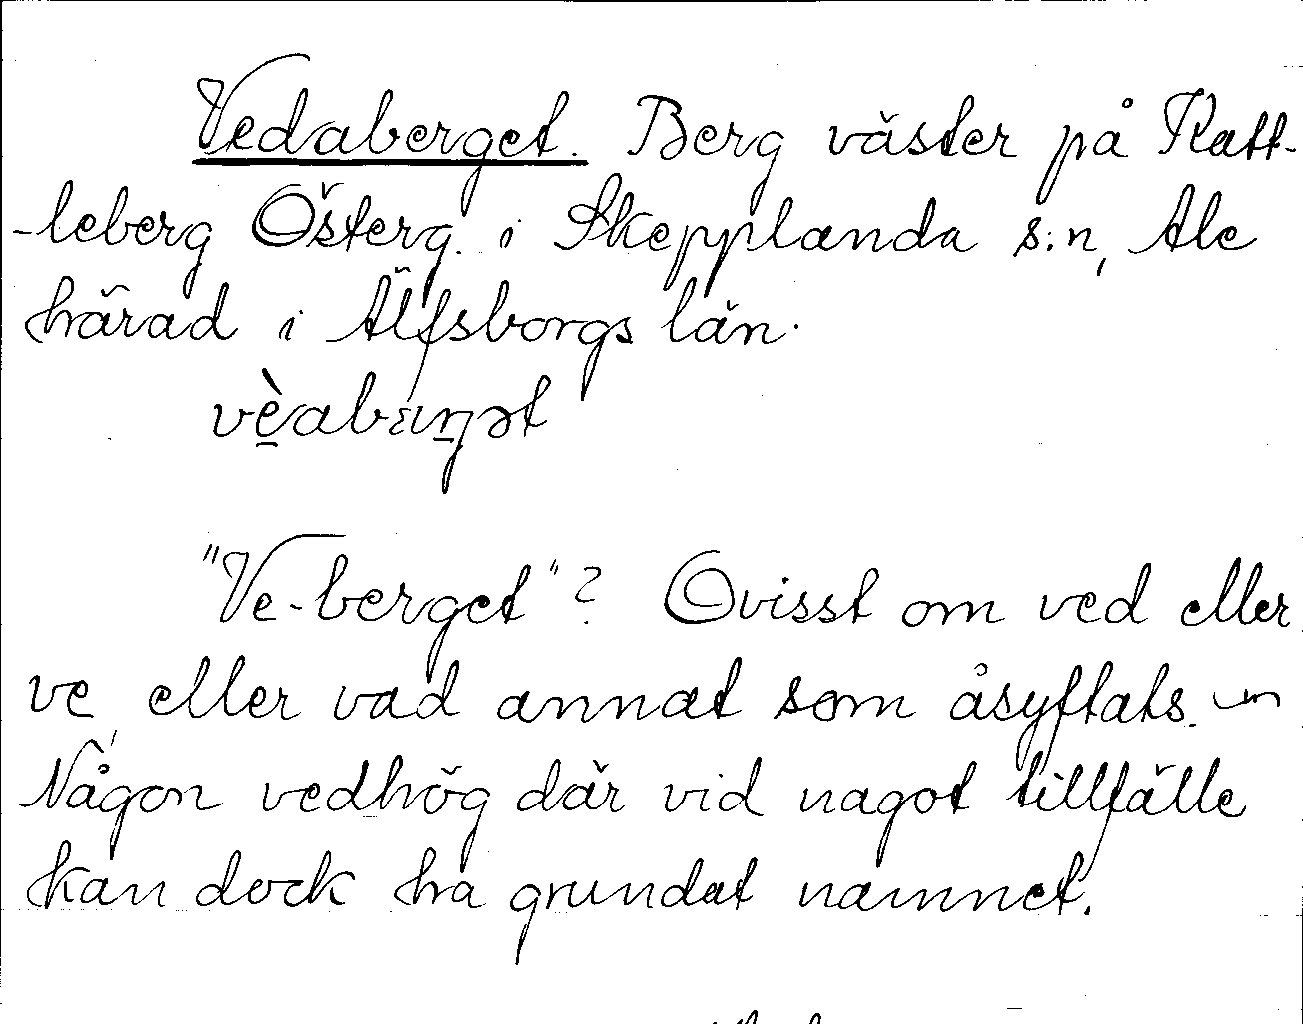 Vedaberget. Berg väster på Katt-
-leberg Österg. i Skepplanda s:n, Ale
härad i Älfsborgs län.
"Ve-berget"? Ovisst om ved eller
ve, eller vad annat som åsyftats.
Någon vedhög där vid nagot tillfälle
kan dock ha grundat namnet.